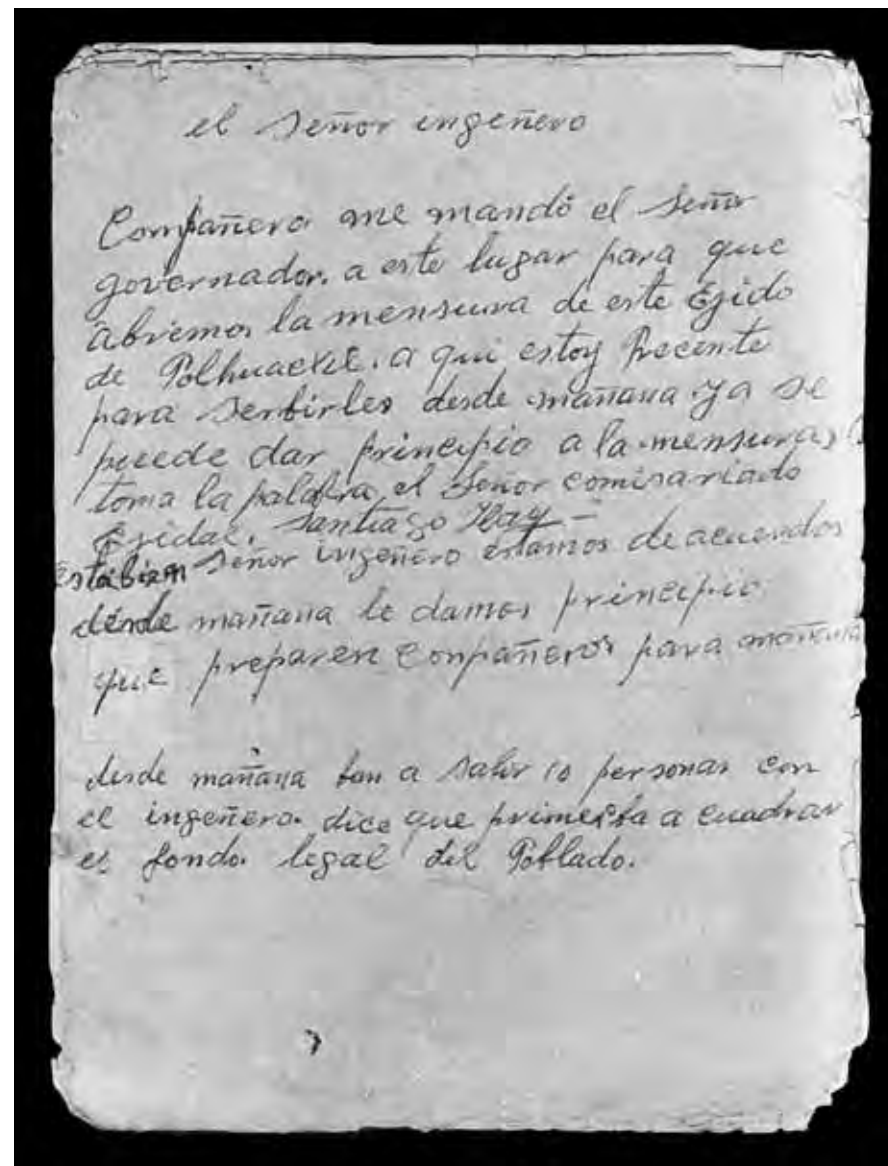 el Señor ingeñero
Compañero me mandó el señor
governador. a este lugar para que
abremos la mensura de este Egido
de Polhuacxil. a qui estoy Precente
para Serbirles desde mañana ya se
puede dar principio a la mensura,
toma la palabra, el Señor comisariado
Egidal. Santiago
está bien Señor ingeñero estamos de acuerdos
désde mañana le damos principio
que preparen Conpañeros para mañana
desde mañana ban a Salir 10 personas con
el ingeñero. dice que a cuadrar
el fondo. legal del Poblado.